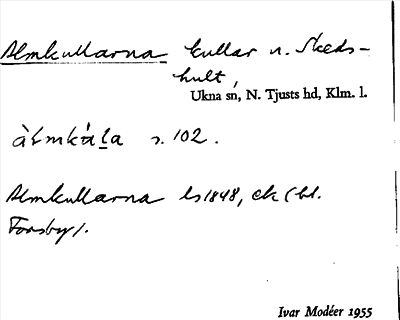 Almkullarna kullar n. Skeds-
hult,
Ukna sn, N. Tjusts hd, Klm. l.
s. 102.
Almkullarna ls 1848, ek (bl.
Forsby).
Ivar Modéer 1955